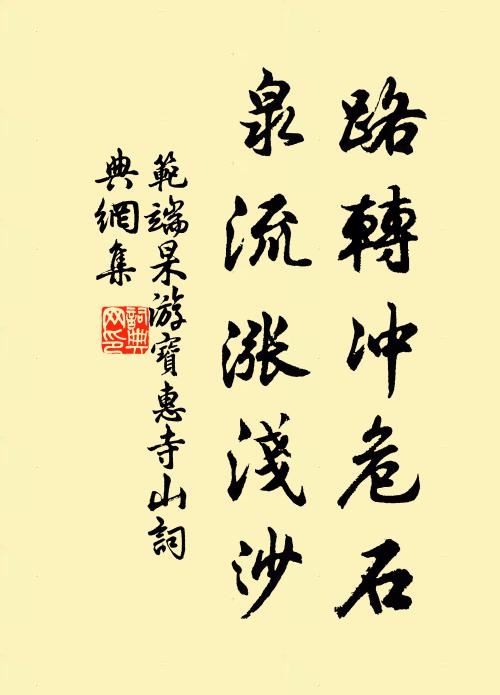 路轉冲危石
泉流漲淺沙
範端杲游寶惠寺山詞
典網集
詞典
网印